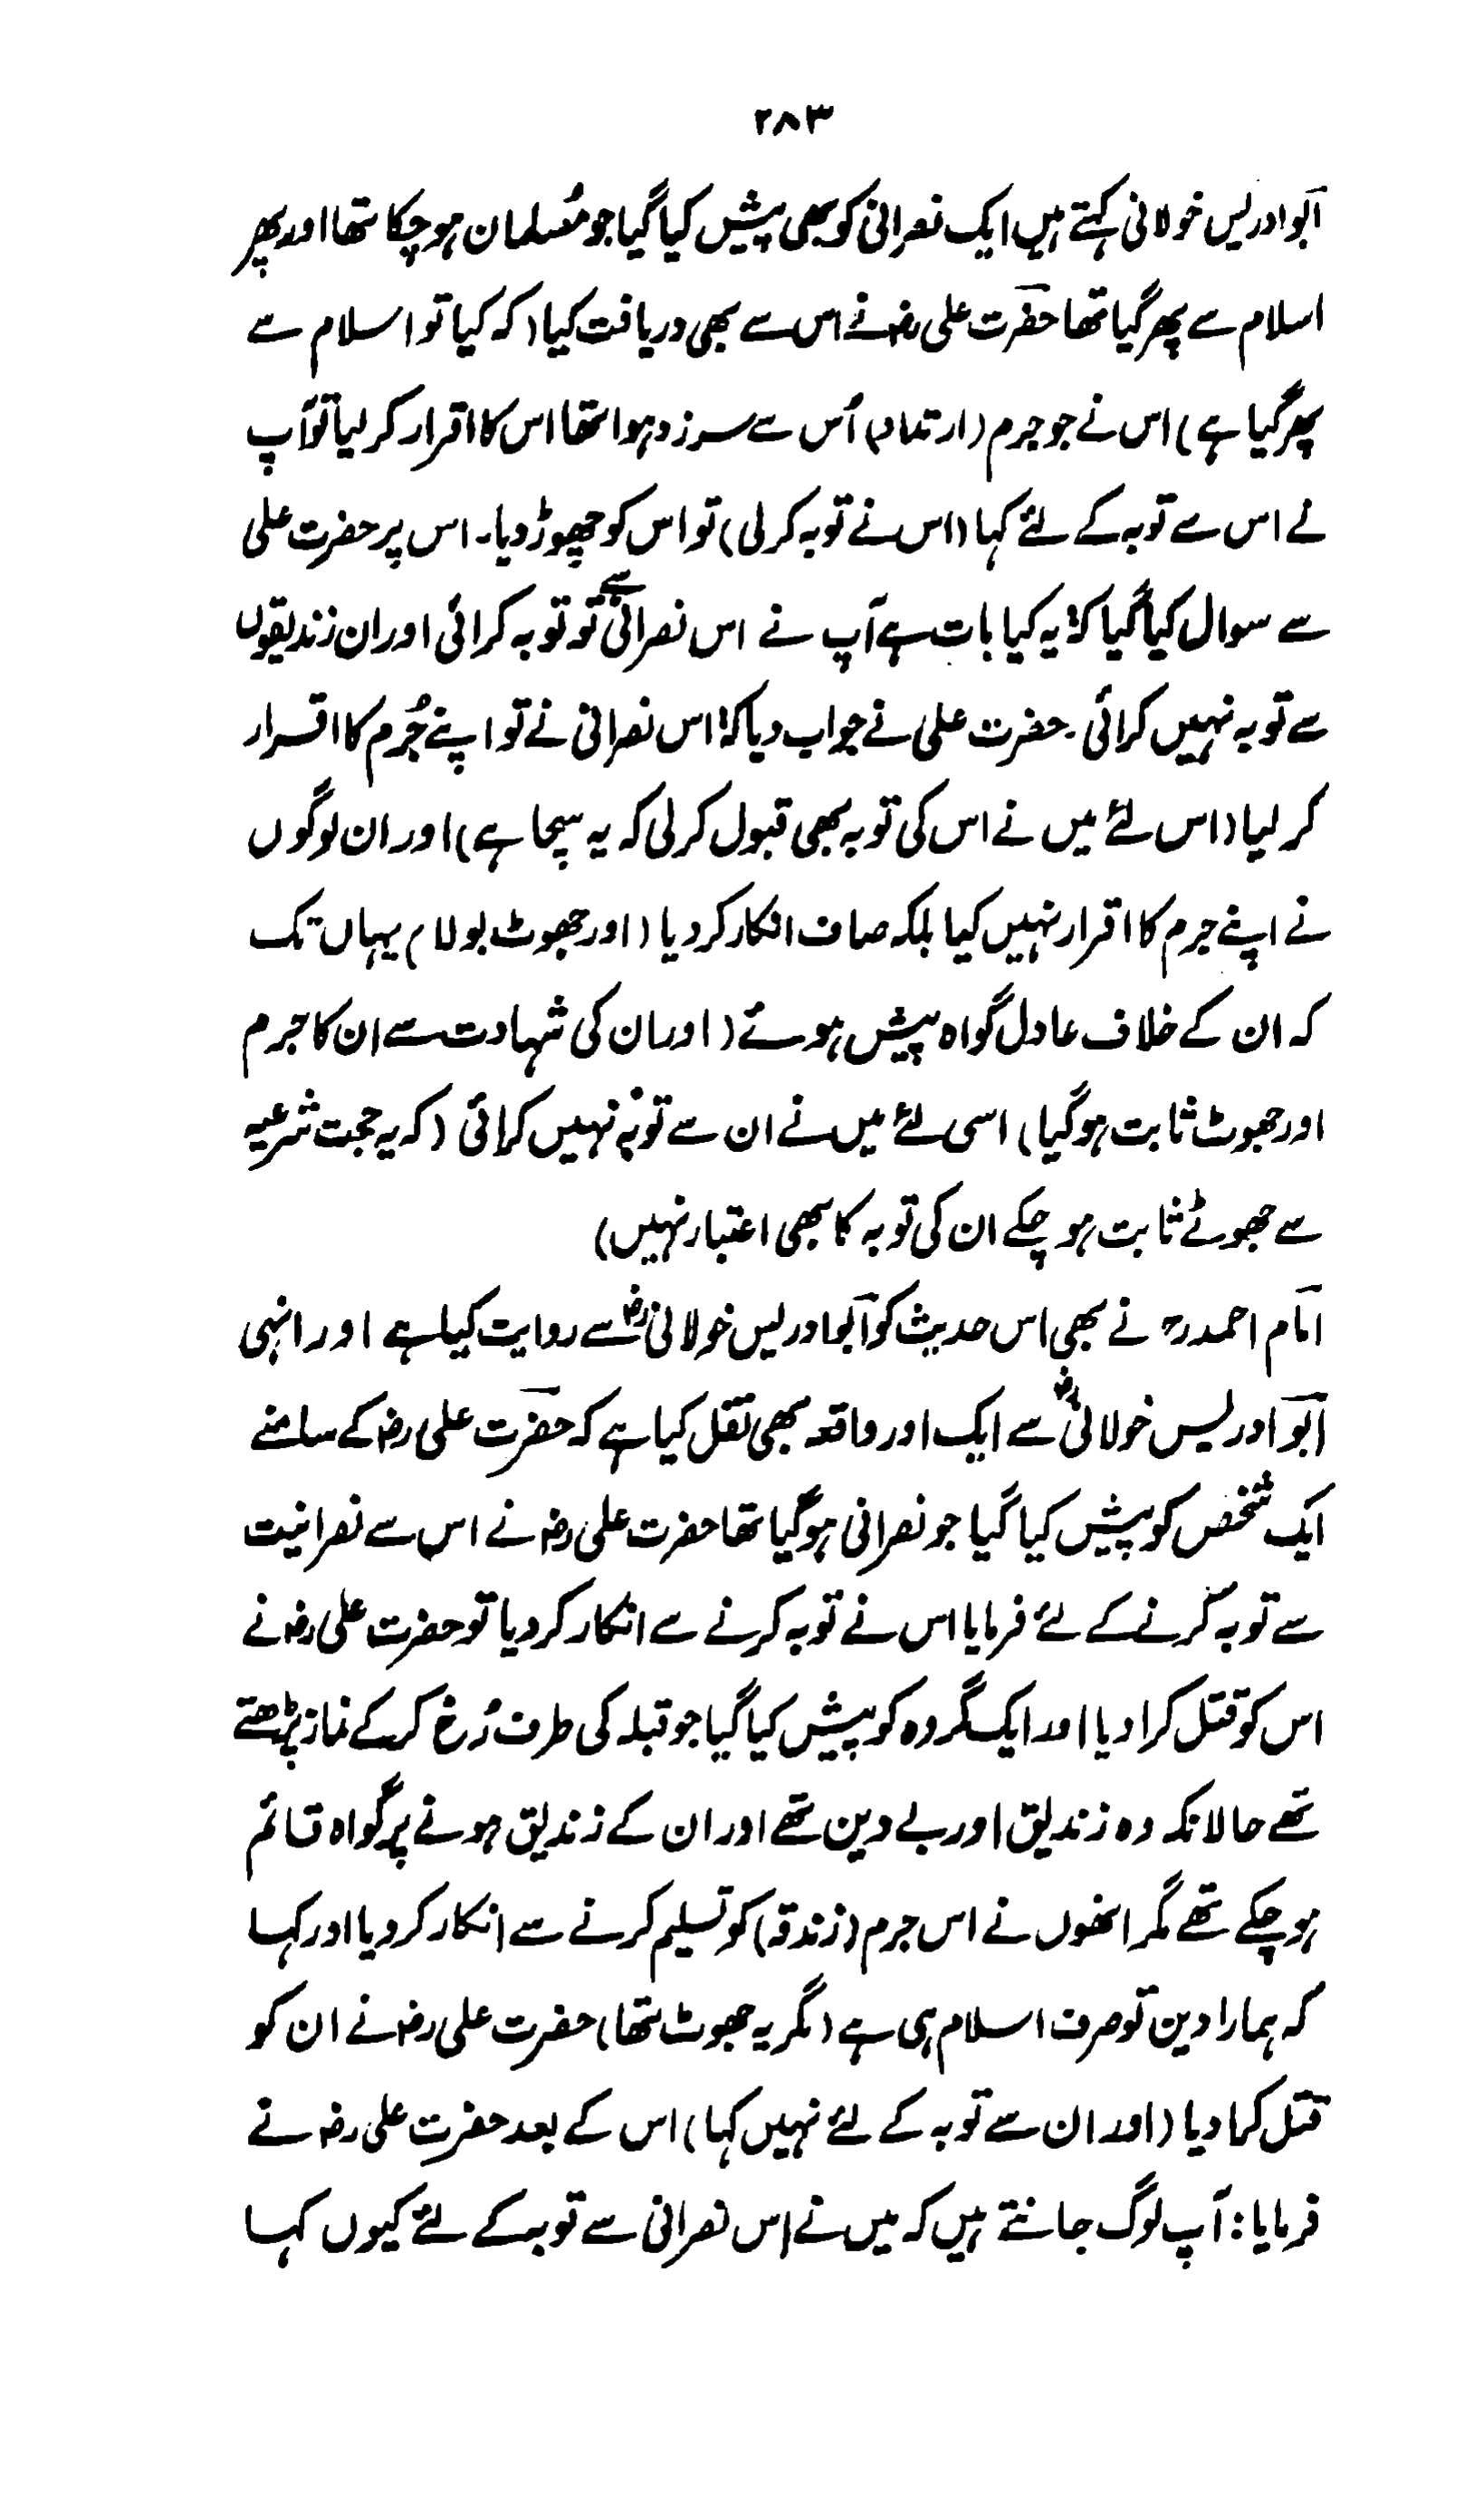 ۲۸۳
ابوادریس خولانی کہتے ہیں ایک نصرانی کو بھی پیش کیا گیا جو مُسلمان ہو چکا تھا اور پھر
اسلام سے پھر گیا تھا حضرت علی رضؓ نے اس سے بھی دریافت کیا (کہ کیا تو اسلام سے
پھر گیا ہے) اس نے جو جرم (ارتداد) اُس سے سرزد ہوا تھا اس کا اقرار کر لیا تو آپ
نے اس سے توبہ کے لئے کہا (اس نے توبہ کر لی) تو اس کو چھوڑ دیا۔ اس پر حضرت علی
سے سوال کیا گیا کہ: یہ کیا بات ہے آپ نے اس نصرانی سے تو توبہ کرائی اور ان زندیقوں
سے توبہ نہیں کرائی۔ حضرت علی نے جواب دیا کہ: اس نصرانی نے تو اپنے جُرم کا اقرار
کر لیا (اس لئے میں نے اس کی توبہ بھی قبول کر لی کہ یہ سچا ہے) اور ان لوگوں
نے اپنے جرم کا اقرار نہیں کیا بلکہ صاف انکار کر دیا (اور جھوٹ بولا) یہاں تک
کہ ان کے خلاف عادل گواہ پیش ہوئے (اور ان کی شہادت سے ان کا جرم
اور جھوٹ ثابت ہو گیا) اسی لئے میں نے ان سے توبہ نہیں کرائی (کہ یہ حجت شرعیہ
سے جھوٹے ثابت ہو چکے ان کی توبہ کا بھی اعتبار نہیں)
امام احمد رحؒ نے بھی اس حدیث کو ابوادریس خولانی رضؓ سے روایت کیا ہے اور انہی
ابو ادریس خولانی رضؓ سے ایک اور واقعہ بھی نقل کیا ہے کہ حضرت علی رضؓ کے سامنے
ایک شخص کو پیش کیا گیا جو نصرانی ہو گیا تھا حضرت علی رضؓ نے اس سے نصرانیت
سے توبہ کرنے کے لئے فرمایا اس نے توبہ کرنے سے انکار کر دیا تو حضرت علی رضؓ نے
اس کو قتل کرا دیا اور ایک گروہ کو پیش کیا گیا جو قبلہ کی طرف رُخ کر کے نماز پڑھتے
تھے حالانکہ وہ زندیق اور بے دین تھے اور ان کے زندیق ہونے پر گواہ قائم
ہو چکے تھے مگر انھوں نے اس جرم (زندقہ) کو تسلیم کرنے سے انکار کر دیا اور کہا
کہ ہمارا دین تو صرف اسلام ہی ہے (مگر یہ جھوٹ تھا) حضرت علی رضؓ نے ان کو
قتل کرا دیا (اور ان سے توبہ کے لئے نہیں کہا) اس کے بعد حضرت علی رضؓ نے
فرمایا: آپ لوگ جانتے ہیں کہ میں نے اس نصرانی سے توبہ کے لئے کیوں کہا